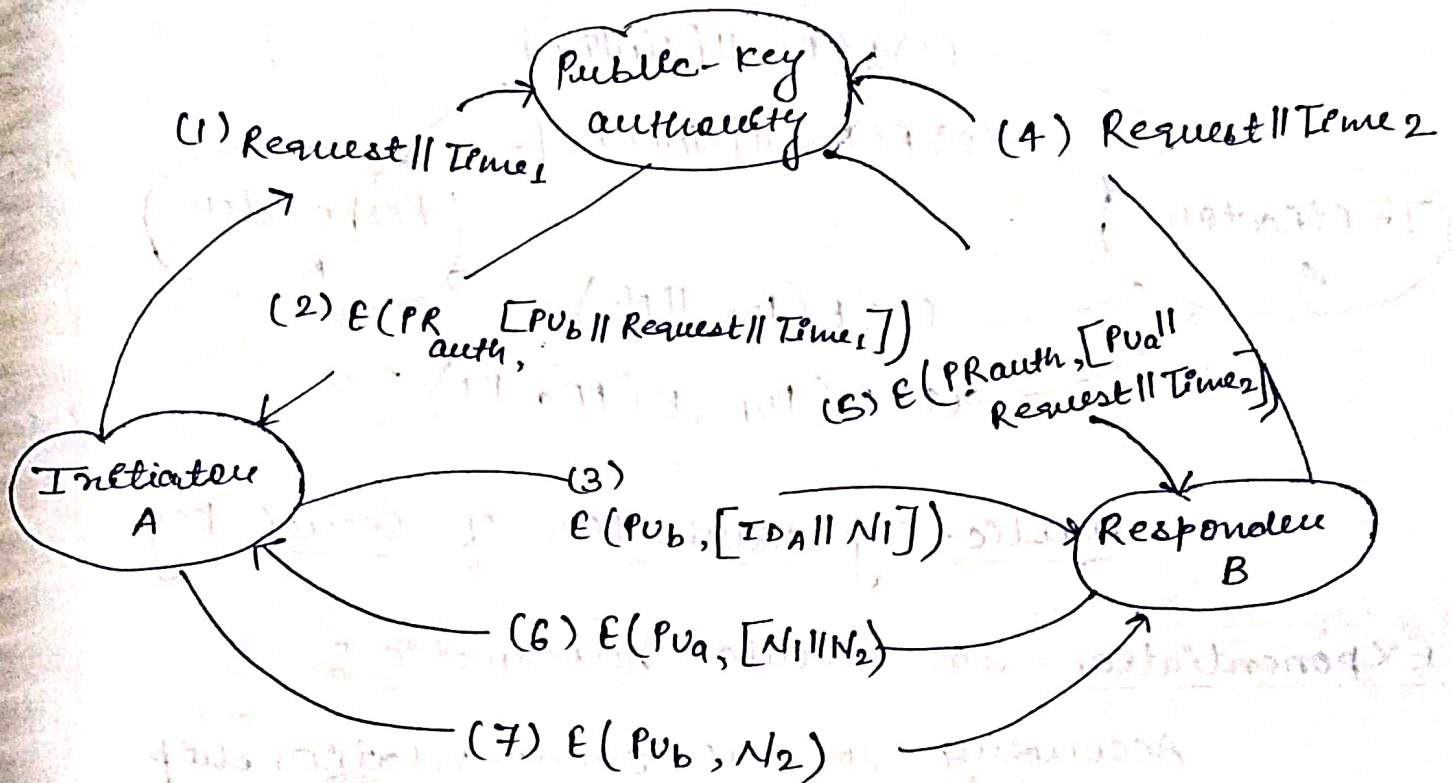 Public-key
authority
(1) Request || Time1
(4) Request || Time 2
(2) E(PRauth, [PUb || Request || Time1])
(5) E(PRauth, [PUa ||
Request || Time2])
Initiator
A
(3)
E(PUb, [IDA || N1])
Responder
B
(6) E(PUa, [N1 || N2)
(7) E(PUb, N2)